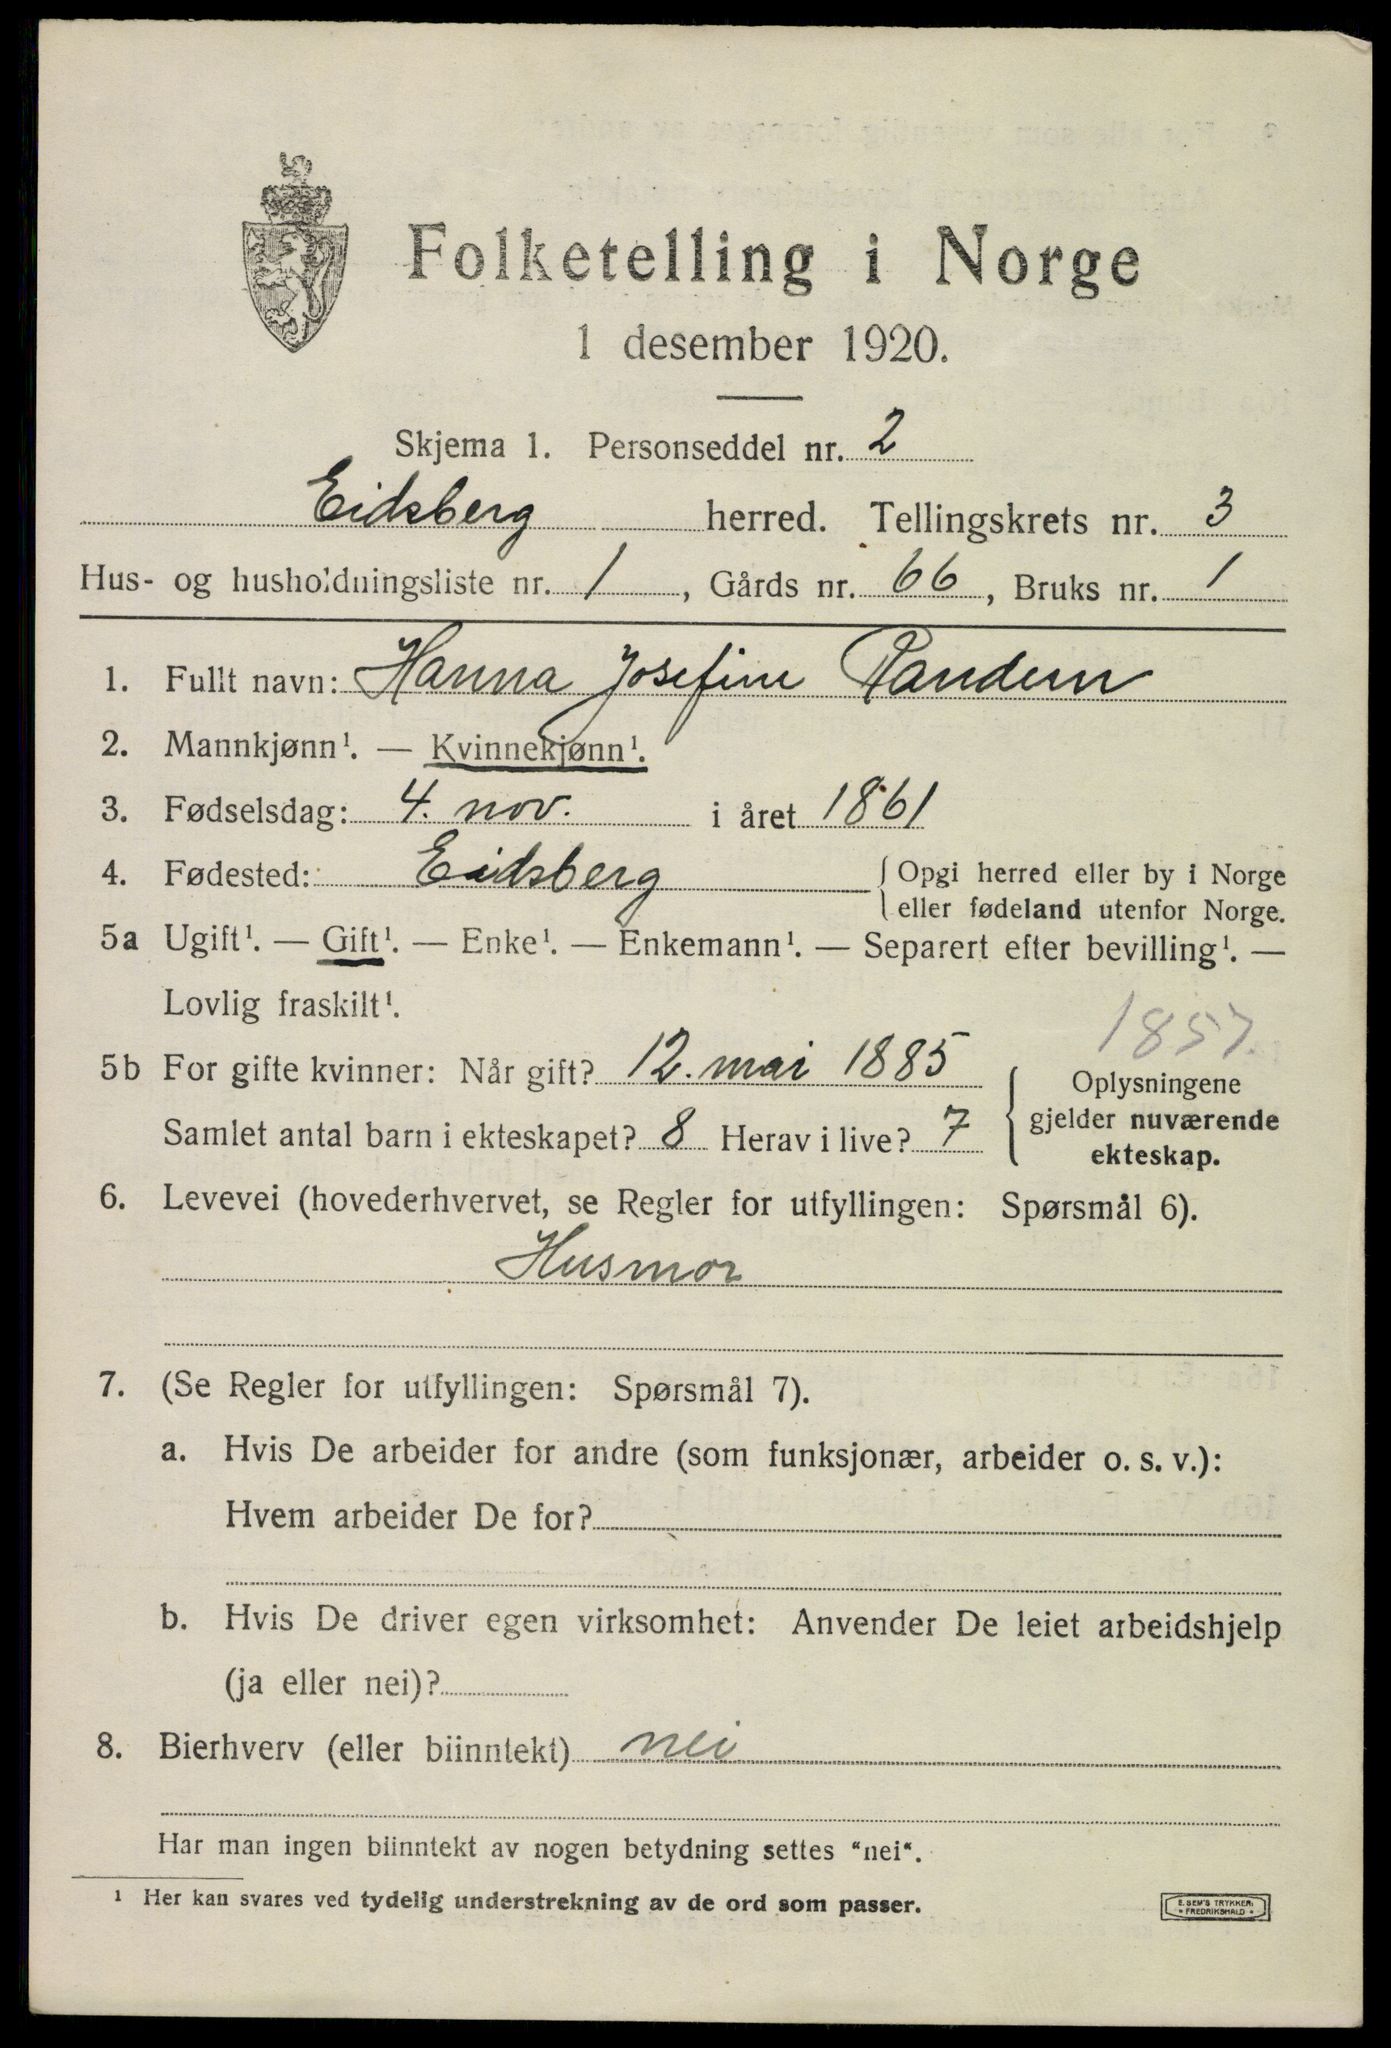 Folketelling i Norge
1 desember 1920.
Skjema 1. Personseddel nr. 2
Eidsberg herred. Tellingskrets nr. 3
Hus- og husholdningsliste nr. 1, Gårds nr. 66, Bruks nr. 1
1. Fullt navn: Hanna Josefine Randem
2. Mannkjønn¹. — Kvinnekjønn¹.
3. Fødselsdag: 4. nov. i året 1861
4. Fødested: Eidsberg { Opgi herred eller by i Norge
eller fødeland utenfor Norge.
5a Ugift¹. — Gift¹. — Enke¹. — Enkemann¹. — Separert efter bevilling¹. —
Lovlig fraskilt¹.
1857.
5b For gifte kvinner: Når gift? 12. mai 1885
Samlet antal barn i ekteskapet? 8 Herav i live? 7
{ Oplysningene
gjelder nuværende
ekteskap.
6. Levevei (hovederhvervet, se Regler for utfyllingen: Spørsmål 6).
Husmor
7. (Se Regler for utfyllingen: Spørsmål 7).
a. Hvis De arbeider for andre (som funksjonær, arbeider o. s. v.):
Hvem arbeider De for?
b. Hvis De driver egen virksomhet: Anvender De leiet arbeidshjelp
(ja eller nei)?
8. Bierhverv (eller biinntekt) nei
Har man ingen biinntekt av nogen betydning settes "nei".
¹ Her kan svares ved tydelig understrekning av de ord som passer.
E. SEM'S TRYKKERI
FREDRIKSHALD